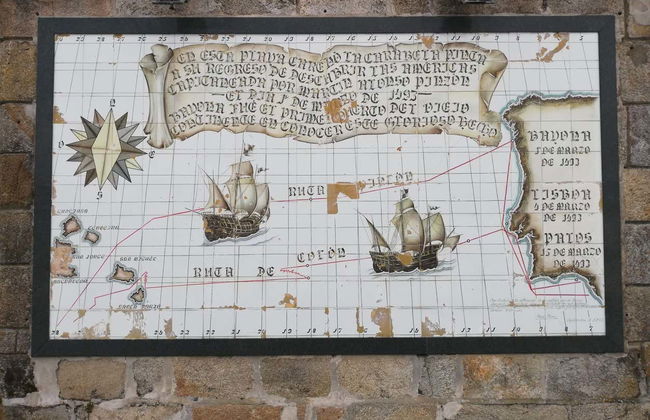 EN ESTA PLAYA ARRIBO LA CARABELA PINTA
A SU REGRESO DE DESCUBRIR LAS AMERICAS
CAPITANEADA POR MARTIN ALONSO PINZON
EL DIA 1 DE MARZO DE 1493
BAYONA FUE EL PRIMER PUERTO DEL VIEJO
CONTINENTE EN CONOCER ESTE GLORIOSO HECHO
BAYONA
1 DE MARZO
DE 1493
LISBOA
4 DE MARZO
DE 1493
PALOS
15 DE MARZO
DE 1493
RUTA PINZON
RUTA DE COLON
SAN JORGE
SAN MIGUEL
SANTA MARIA